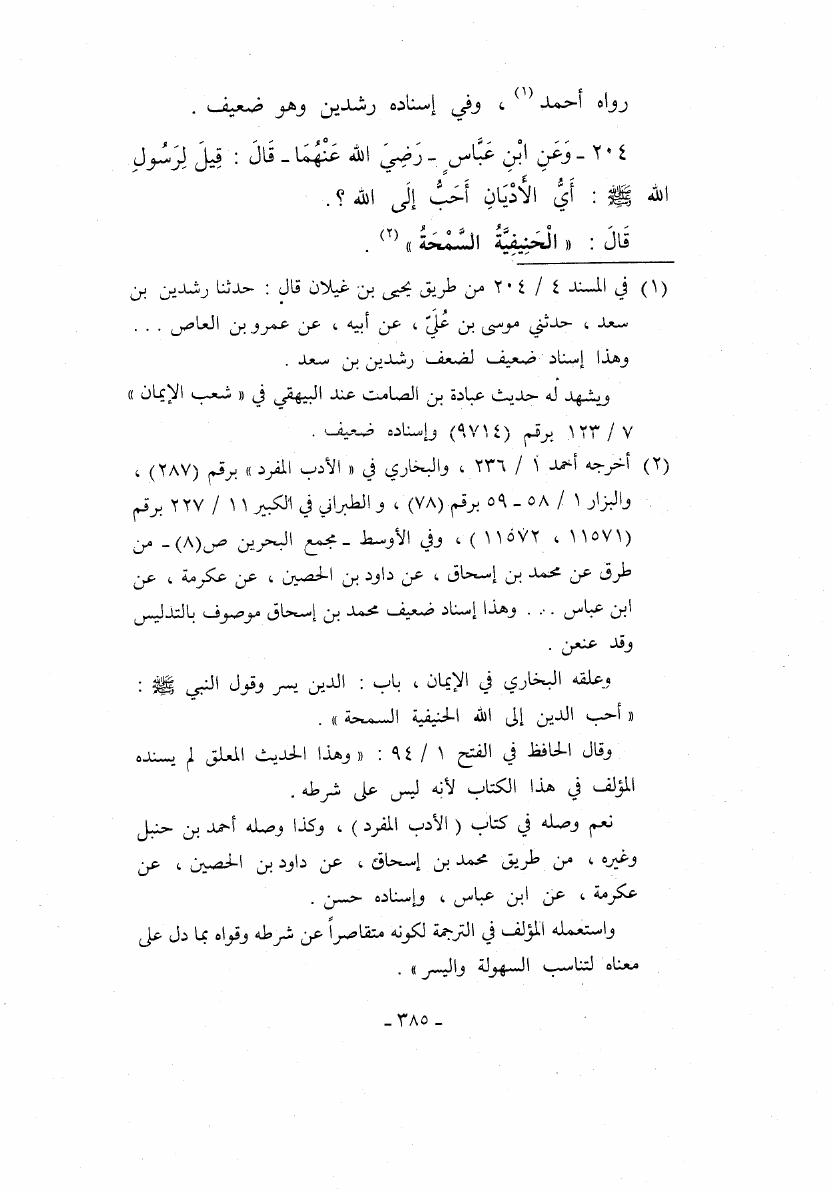 رواه أحمد (١) ، وفي إسناده رشدين وهو ضعيف .
٢٠٤ ـ وَعَنِ ابْنِ عَبَّاسٍ ـ رَضِيَ الله عَنْهُمَا ـ قَالَ : قِيلَ لِرَسُولِ
الله ﷺ : أَيُّ الْأَدْيَانِ أَحَبُّ إِلَى الله ؟ .
قَالَ : « الْحَنِيفِيَّةُ السَّمْحَةُ » (٢) .
(١) في المسند ٤ / ٢٠٤ من طريق يحيى بن غيلان قال : حدثنا رشدين بن
سعد ، حدثني موسى بن عُلَيّ ، عن أبيه ، عن عمرو بن العاص ...
وهذا إسناد ضعيف لضعف رشدين بن سعد .
ويشهد له حديث عبادة بن الصامت عند البيهقي في « شعب الإيمان »
٧ / ١٢٣ برقم (٩٧١٤) وإسناده ضعيف .
(٢) أخرجه أحمد ١ / ٢٣٦ ، والبخاري في « الأدب المفرد » برقم (٢٨٧) ،
والبزار ١ / ٥٨ ـ ٥٩ برقم (٧٨) ، والطبراني في الكبير ١١ / ٢٢٧ برقم
(١١٥٧١ ، ١١٥٧٢ ) ، وفي الأوسط ـ مجمع البحرين ص(٨) ـ من
طرق عن محمد بن إسحاق ، عن داود بن الحصين ، عن عكرمة ، عن
ابن عباس ... وهذا إسناد ضعيف محمد بن إسحاق موصوف بالتدليس
وقد عنعن .
وعلقه البخاري في الإيمان ، باب : الدين يسر وقول النبي ﷺ :
« أحب الدين إلى الله الحنيفية السمحة » .
وقال الحافظ في الفتح ١ / ٩٤ : « وهذا الحديث المعلق لم يسنده
المؤلف في هذا الكتاب لأنه ليس على شرطه .
نعم وصله في كتاب ( الأدب المفرد ) ، وكذا وصله أحمد بن حنبل
وغيره ، من طريق محمد بن إسحاق ، عن داود بن الحصين ، عن
عكرمة ، عن ابن عباس ، وإسناده حسن .
واستعمله المؤلف في الترجمة لكونه متقاصراً عن شرطه وقواه بما دل على
معناه لتناسب السهولة واليسر » .
ـ ٣٨٥ ـ